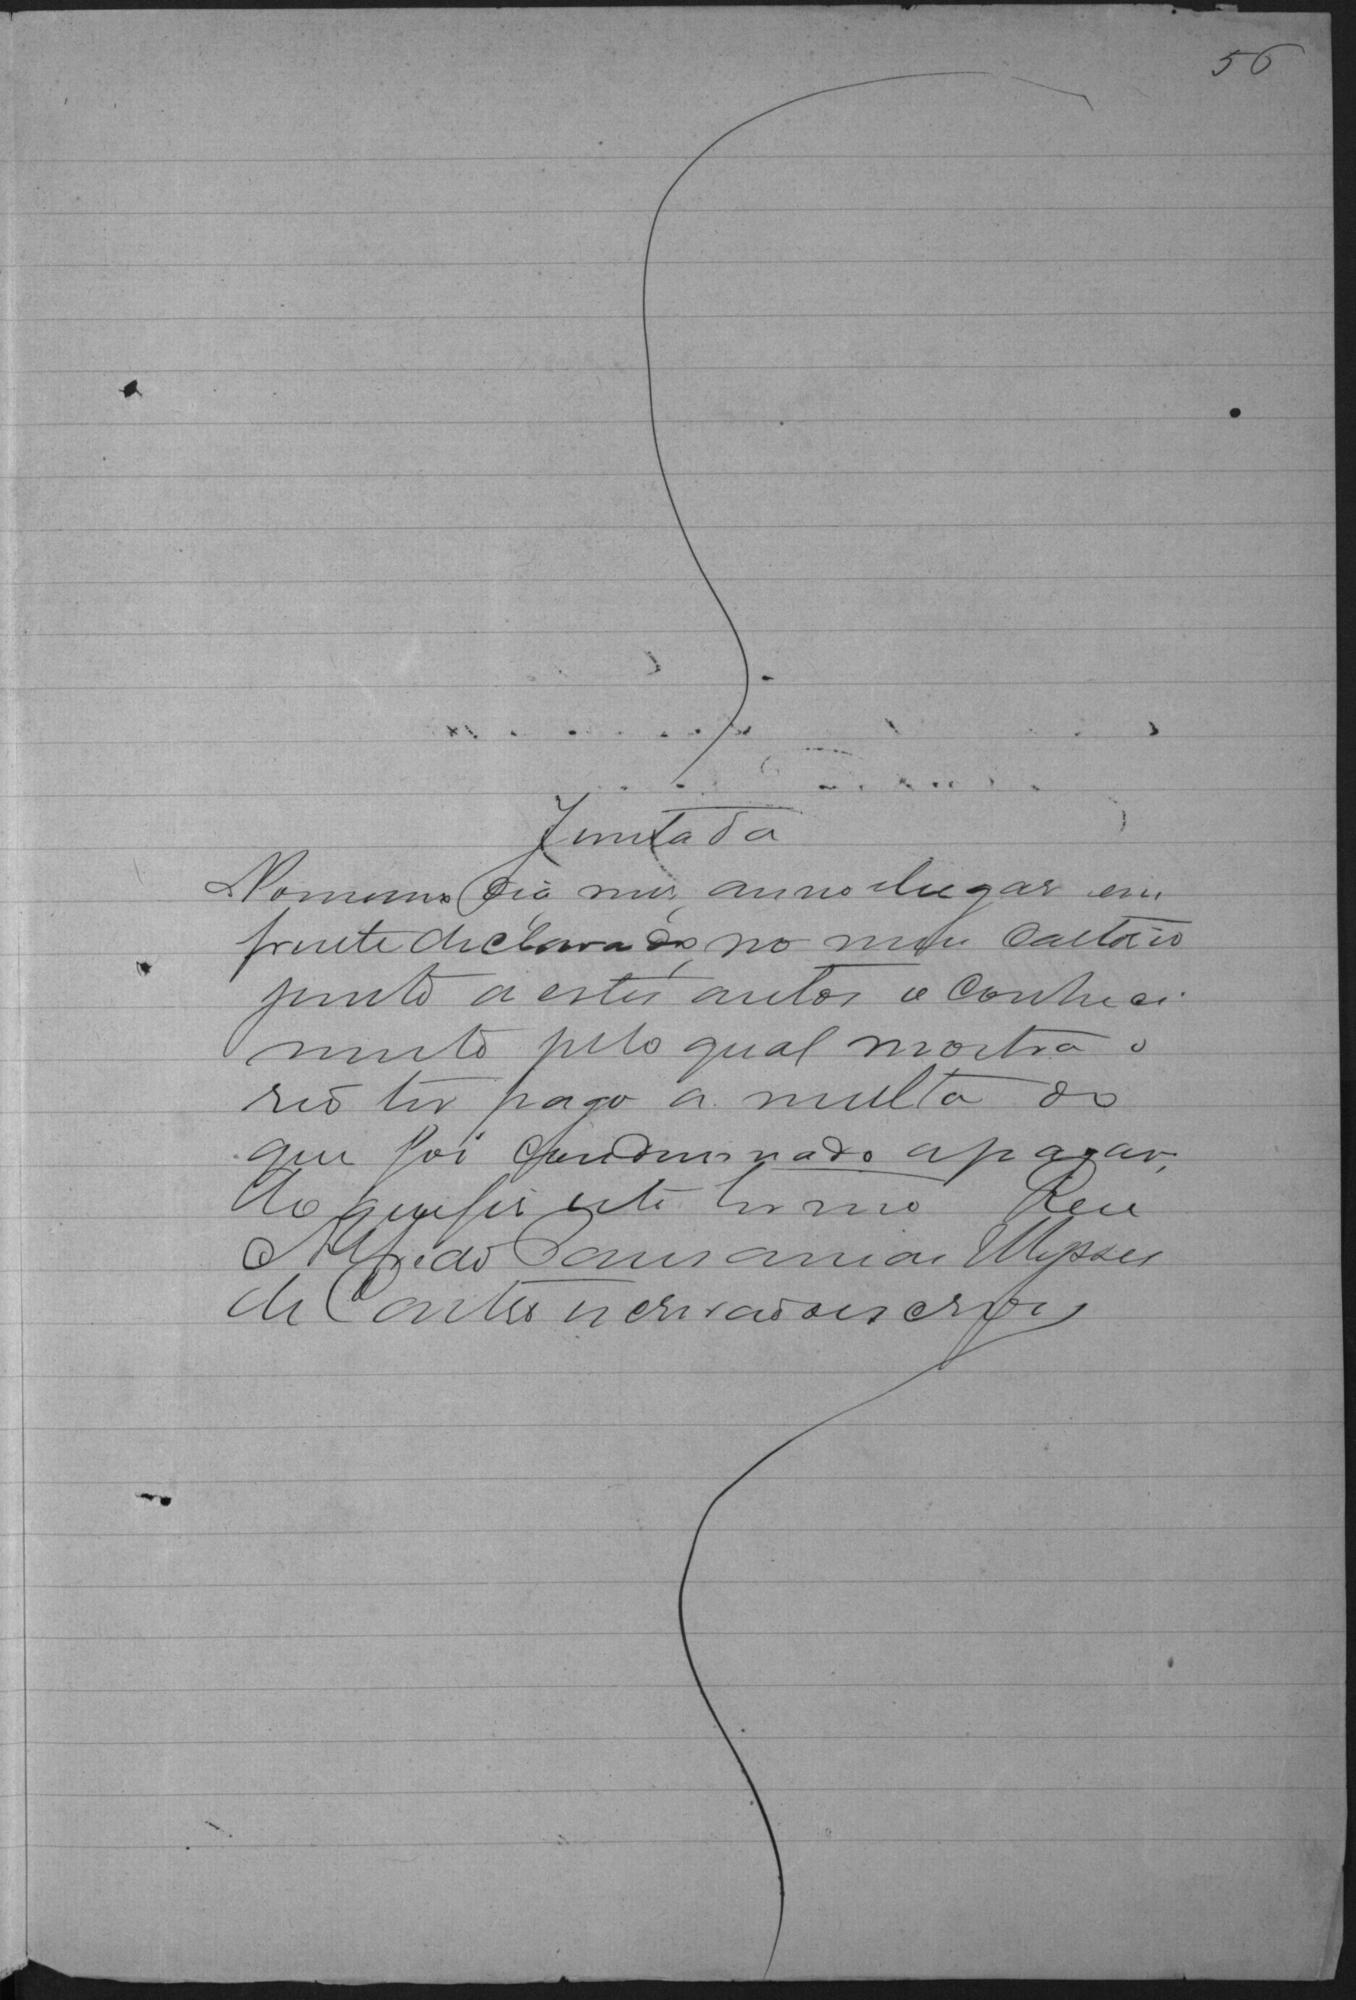 56
Juntada
No mesmo dia mes, anno e lugar em
frente declarado, no meu cartorio
junto a estes autos o conheci
mento pelo qual mostra o
reo ter pago a multa do
que foi condemnado a pagar,
do que fiz este termo Eu
Alfredo Pausanias Ulysses
de Castro escrivão o escrevi